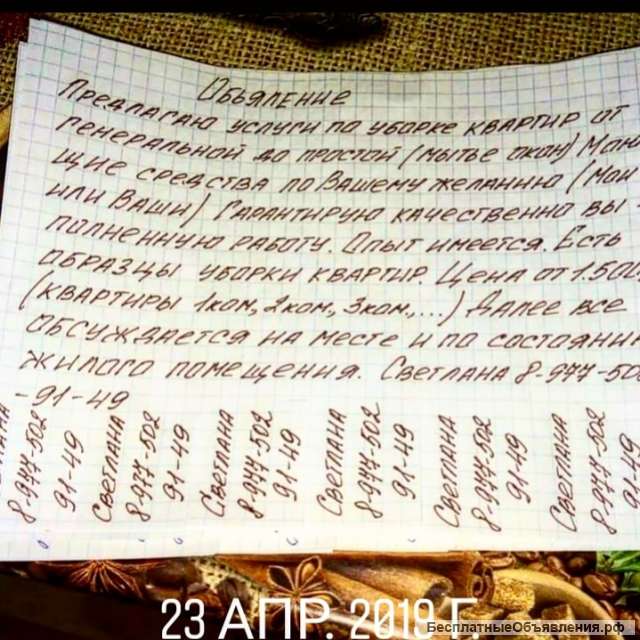 Объяление
Предлагаю услуги по уборке квартир от
генеральной до простой (мытье окон) Мою-
щие средства по Вашему желанию (мои
или Ваши) Гарантирую качественно вы-
полненную работу. Опыт имеется. Есть
образцы уборки квартир. Цена от 1.500
(квартиры 1ком, 2ком, 3ком,...) Далее все
обсуждается на месте и по состоянию
жилого помещения. Светлана 8-977-502
-91-49
8-977-502
91-49
Светлана
8-977-502
91-49
Светлана
8-977-502
91-49
Светлана
8-977-502
91-49
Светлана
8-977-502
91-49
Светлана
8-977-502
91-49
23 АПР. 2019 Г.
БесплатныеОбъявления.рф